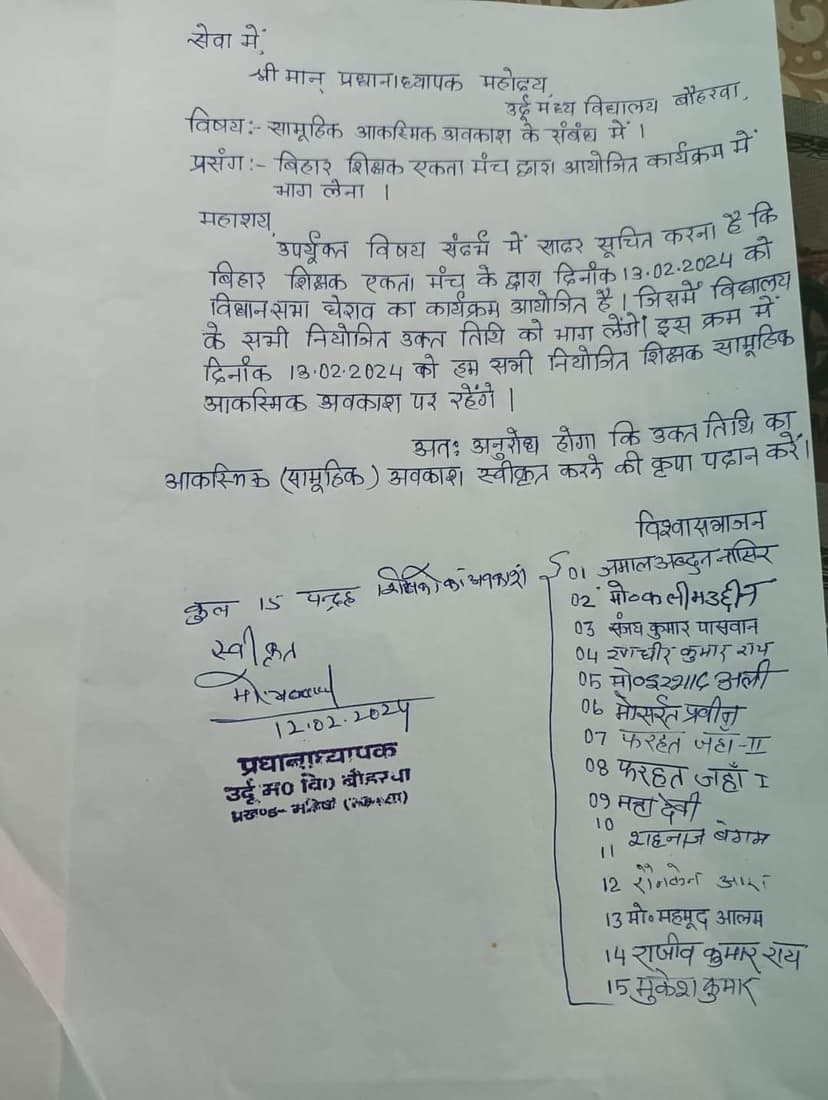 सेवा में,
श्रीमान् प्रधानाध्यापक महोदय,
उर्दू मध्य विद्यालय बौहरवा,
विषय:- सामूहिक आकस्मिक अवकाश के संबंध में ।
प्रसंग:- बिहार शिक्षक एकता मंच द्वारा आयोजित कार्यक्रम में
भाग लेना ।
महाशय,
उपर्यूक्त विषय संदर्भ में सादर सूचित करना है कि
बिहार शिक्षक एकता मंच के द्वारा दिनाँक 13.02.2024 को
विधानसभा घेराव का कार्यक्रम आयोजित है। जिसमें विद्यालय
के सभी नियोजित उक्त तिथि को भाग लेंगे। इस क्रम में
दिनाँक 13.02.2024 को हम सभी नियोजित शिक्षक सामूहिक
आकस्मिक अवकाश पर रहेंगे ।
अतः अनुरोध होगा कि उक्त तिथि का
आकस्मिक (सामूहिक) अवकाश स्वीकृत करने की कृपा प्रदान करें।
विश्वासभाजन
01 जमाल अब्दुल नासिर
02 मो० कलीमउद्दीन
03 संजय कुमार पासवान
04 रणधीर कुमार राय
05 मो० इरशाद अली
06 मोसर्रत प्रवीन
07 फरहत जहाँ-II
08 फरहत जहाँ I
09 महा देवी
10
11 शहनाज बेगम
12 आरा
13 मो० महमूद आलम
14 राजीव कुमार राय
15 मुकेश कुमार
कुल 15 पन्द्रह शिक्षकों का अवकाश
स्वीकृत
12.02.2024
प्रधानाध्यापक
उर्दू म० वि० बौहरवा
प्रखण्ड- महिषी (सहरसा)